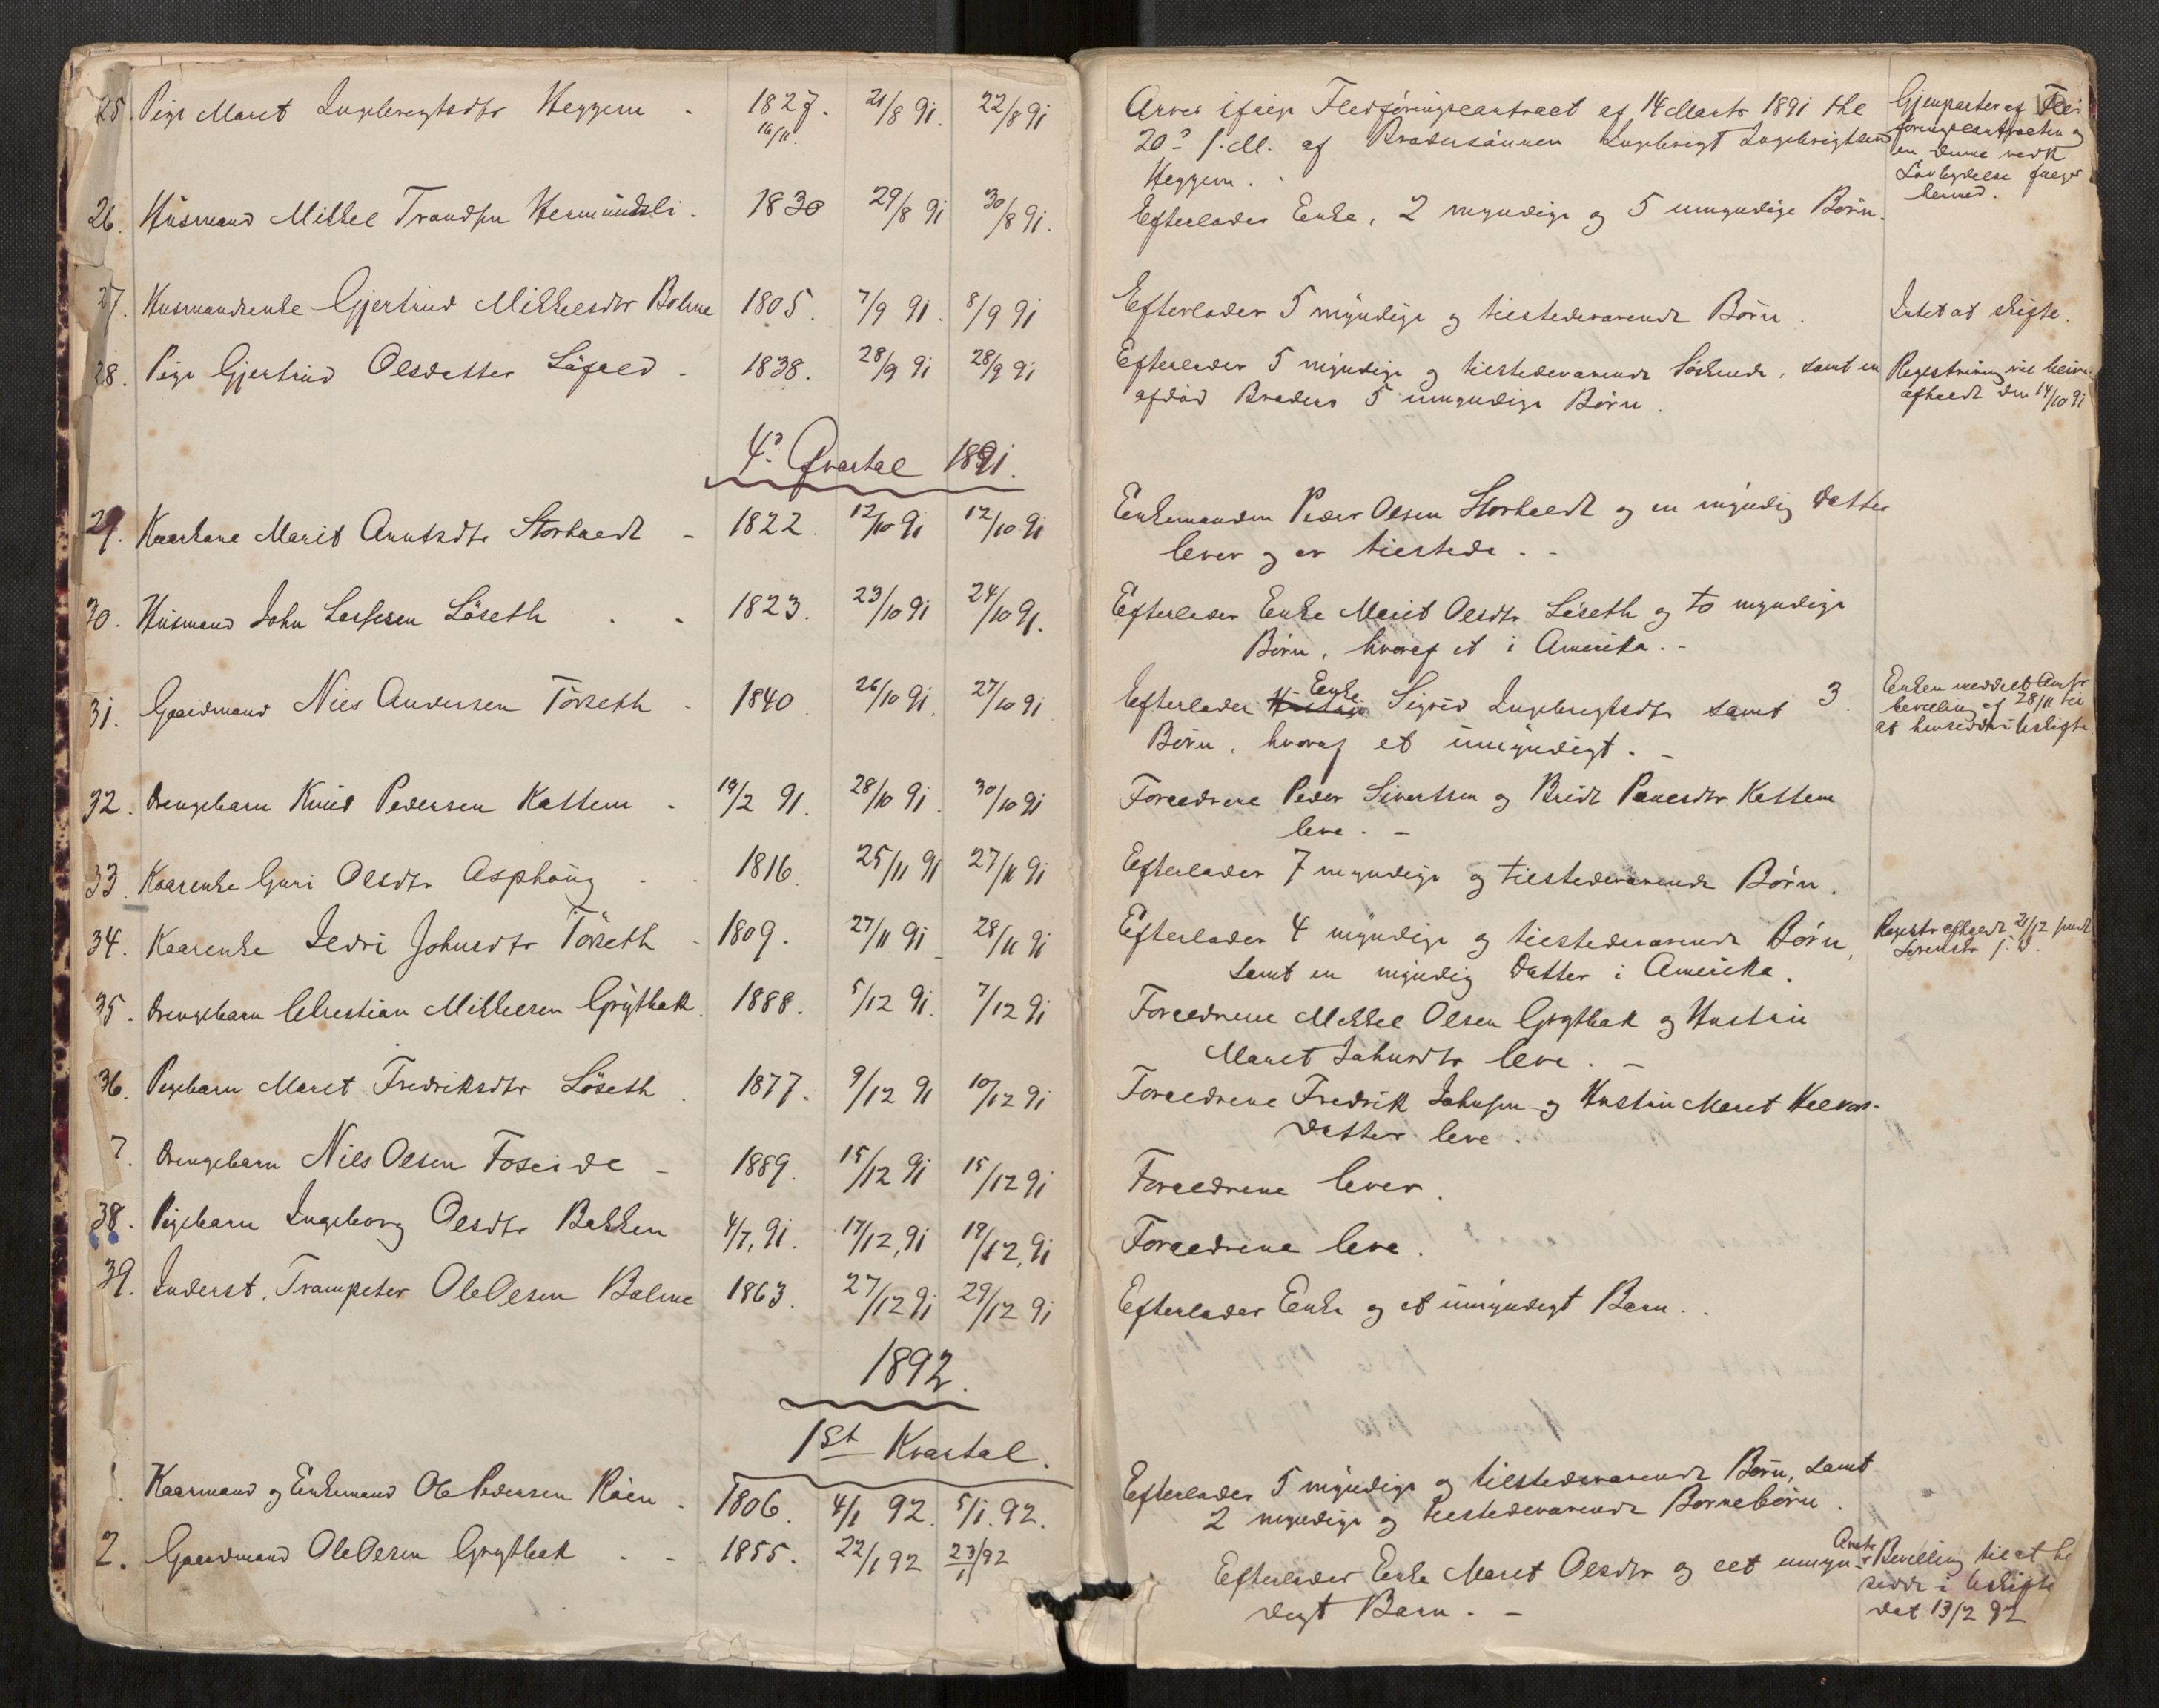 25. Pige Marit Ingebrigtsdtr Heggem - 1827. 21/8 91. 22/8 91
16/11.
26. Husmand Mikkel Trondsen Hermundsli. 1830 29/8 91 30/8 91.
27. Husmandsenke Gjertrud Mikkelsdtr Bolme 1805. 7/9 91. 8/9 91
28. Pige Gjertrud Olsdatter Löfald. 1838. 28/9 91 28/9 91
4de Qvartal 1891.
29. Kaarkone Marit Arntsdtr Storholdt - 1822. 12/10 91 12/10 91
30. Husmand John Larssen Löseth . . 1823. 23/10 91 24/10 91.
31. Gaardmand Nils Andersen Törseth - 1840 26/10 91. 27/10 91
32. Drengebarn Knud Pedersen Kattem - 19/2 91. 28/10 91. 30/10 91
33. Kaarenke Guri Olsdtr Asphoug . . 1816. 25/11 91 27/11 91
34. Kaarenke Sedri Johnsdtr Törseth - 1809. 27/11 91 28/11 91
35. Drengebarn Christian Mikkelsen Grytbak. 1888. 5/12 91. 7/12 91
36. Pigebarn Marit Fredriksdtr Löseth . 1877. 9/12 91 10/12 91
7. Drengebarn Nils Olsen Foseide - 1889. 15/12 91 15/12 91
38. Pigebarn Ingeborg Olsdtr Bakken 4/7, 91. 17/12, 91 19/12, 91
39. Inderst, Trompeter Ole Olsen Bolme 1863. 27/12 91 29/12 91
1892.
1st Kvartal.
1. Kaarmand og Enkemand Ole Pedersen Röen . 1806. 4/1 92. 5/1. 92.
2. Gaardmand Ole Olsen Grytbak . - 1855. 22/1 92 23/1 92
Arves ifölge Fledföringscontract af 14 Marts 1891 thl
20de s. M. af Brodersönnen Ingebrigt Ingebrigtsen
Heggem.
Efterlader Enke, 2 myndige og 5 umyndige Börn.
Efterlader 5 myndige og tilstedeværende Börn.
Efterlader 5 myndige og tilstedeværende Söskende, samt en
afdöd Broders 5 umyndige Börn.
Enkemanden Peder Olsen Storholdt og en myndig Datter
lever og er tilstede. -
Efterlader Enke Marit Olsdtr Löseth og to myndige
Börn, hvoraf et i Amerika. -
Efterlader Enke Sigrid Ingebrigtsdtr samt 3
Börn, hvoraf et umyndigt. -
Forældrene Peder Sivertsen og Brit Paulsdtr Kattem
leve. -
Efterlader 7 myndige og tilstedeværende Börn.
Efterlader 4 myndige og tilstedeværende Börn,
samt en myndig Datter i Amerika.
Forældrene Mikkel Olsen Grytbak og Hustru
Marit Johnsdtr leve. -
Forældrene Fredrik Johnsen og Hustru Marit Halvors-
datter leve.
Forældrene lever.
Forældrene leve.
Efterlader Enke og et umyndigt Barn. .
Efterlader 5 myndige og tilstedeværende Börn, samt
2 myndige og tilstedeværende Börnebörn.
Efterlader Enke Marit Olsdtr og eet umyn-
digt Barn. -
Gjenparter af Fled
föringscontracten og
en denne vedk
Lovbydelse fölger
herved.
Intet at skifte.
Registrering vil blive
afholdt den 14/10 91
Enken meddelt Amts
bevilling af 28/11 til
at hensidde i uskifte
Registr afholdt 21/12
Amts Bevilling til at he
sidde i Uskifte
dat 13/2 92